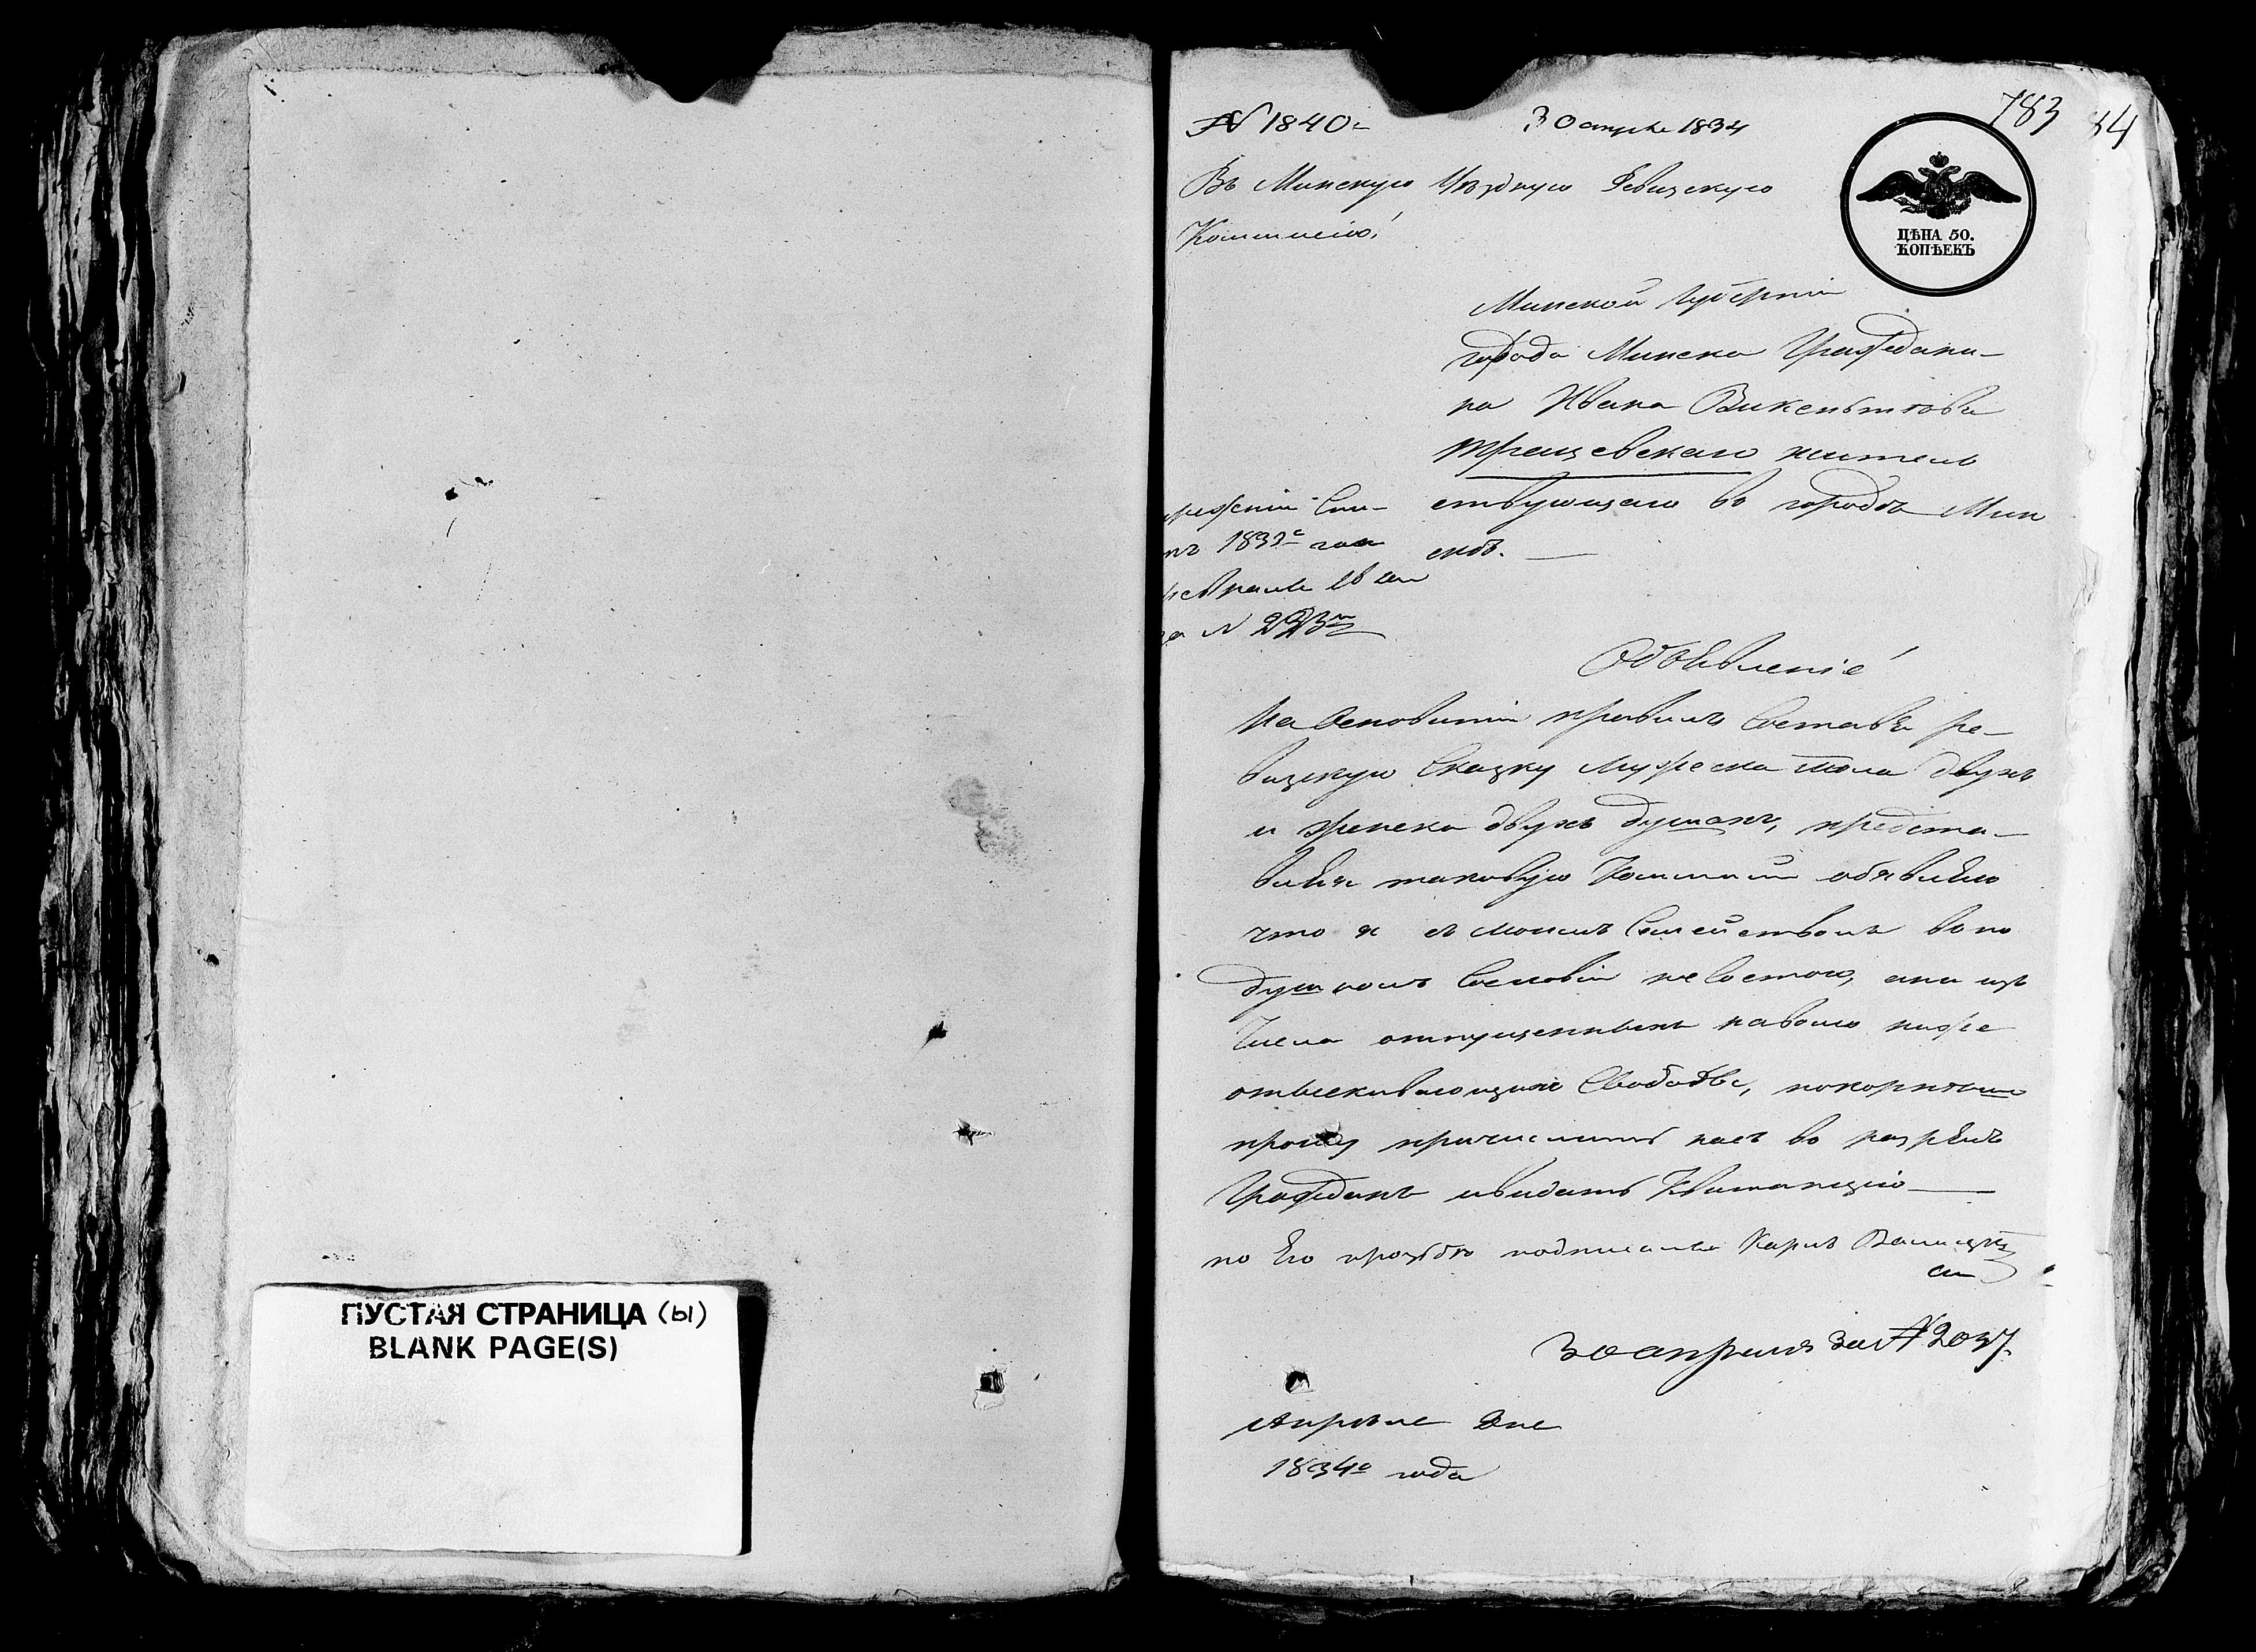 ПУСТАЯ СТРАНИЦА (ы)
BLANK PAGE(S)
№ 1840
30 апрѣля 1834
783
84
Въ Минскую Уѣздную Ревизскую
Коммисію
ЦѢНА 50.
КОПѢЕКЪ
Минской Губерніи
города Минска Граждани-
на Ивана Викентьева
Трещевскаго житель
ствующаго въ городѣ Мин
скѣ.
1833 года
за № 223
Объявленіе
На Основаніи правилъ Составя ре-
визскую Сказку Мужеска пола двухъ
и женска двухъ душахъ, предста-
вляя таковую Коммисіи объявляю
что я съ моимъ Семействомъ въ по
душномъ Сословіи не Состою, а изъ
Числа отпущенныхъ на волю
отыскивающихъ Свободы, покорнѣйше
прошу причислить насъ во разрядъ
Гражданъ и выдать Квитанцію
по Его прозбѣ подписалъ Карлъ
30 апрѣля за № 2037.
Апрѣля Дня
1834го года